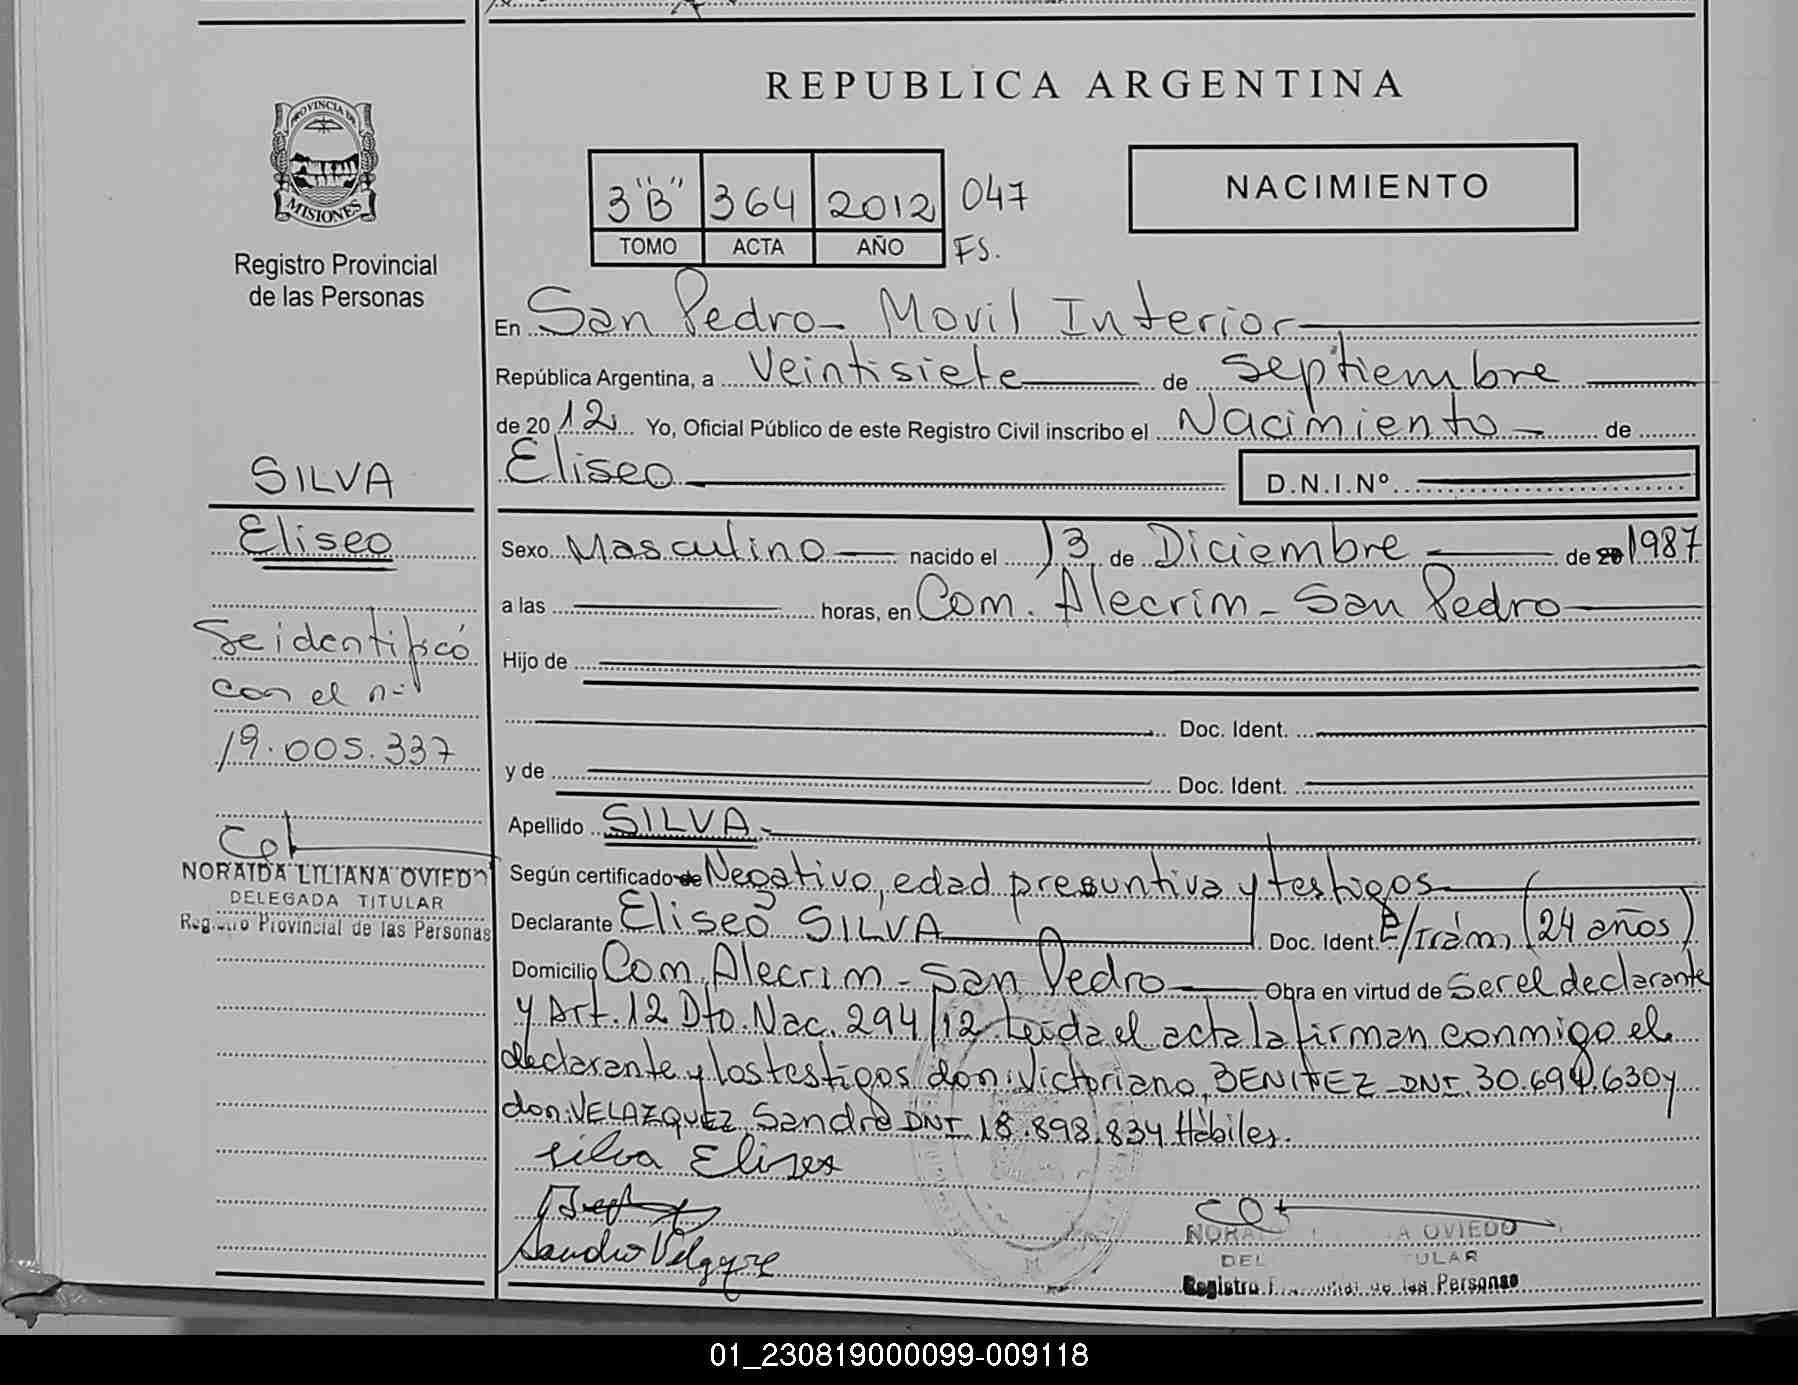 PROVINCIA DE
MISIONES
Registro Provincial
de las Personas
SILVA
Eliseo
Se identificó
con el nº
19.005.337
NORAIDA LILIANA OVIEDO
DELEGADA TITULAR
Registro Provincial de las Personas
REPUBLICA ARGENTINA
3"B" 364 2012 047
TOMO ACTA AÑO FS.
NACIMIENTO
En San Pedro - Movil Interior
República Argentina, a Veintisiete de septiembre
de 2012 Yo, Oficial Público de este Registro Civil inscribo el Nacimiento de
Eliseo D.N.I.Nº
Sexo Masculino nacido el 13 de Diciembre de 20 1987
a las horas, en Com. Alecrim - San Pedro
Hijo de
Doc. Ident.
y de Doc. Ident.
Apellido SILVA
Según certificado de Negativo, edad presuntiva y testigos
Declarante Eliseo SILVA Doc. Ident. E/Trám. (24 años)
Domicilio Com. Alecrim - San Pedro Obra en virtud de Ser el declarante
y Art. 12 Dto. Nac. 294/12 Leida el acta la firman conmigo el
declarante y los testigos don: Victoriano, BENITEZ - DNI. 30.694.630 y
don: VELAZQUEZ Sandro DNI 18.898.834 Hábiles.
Silva Eliseo
NORA A OVIEDO
DEL TULAR
Registro de las Personas
01_230819000099-009118